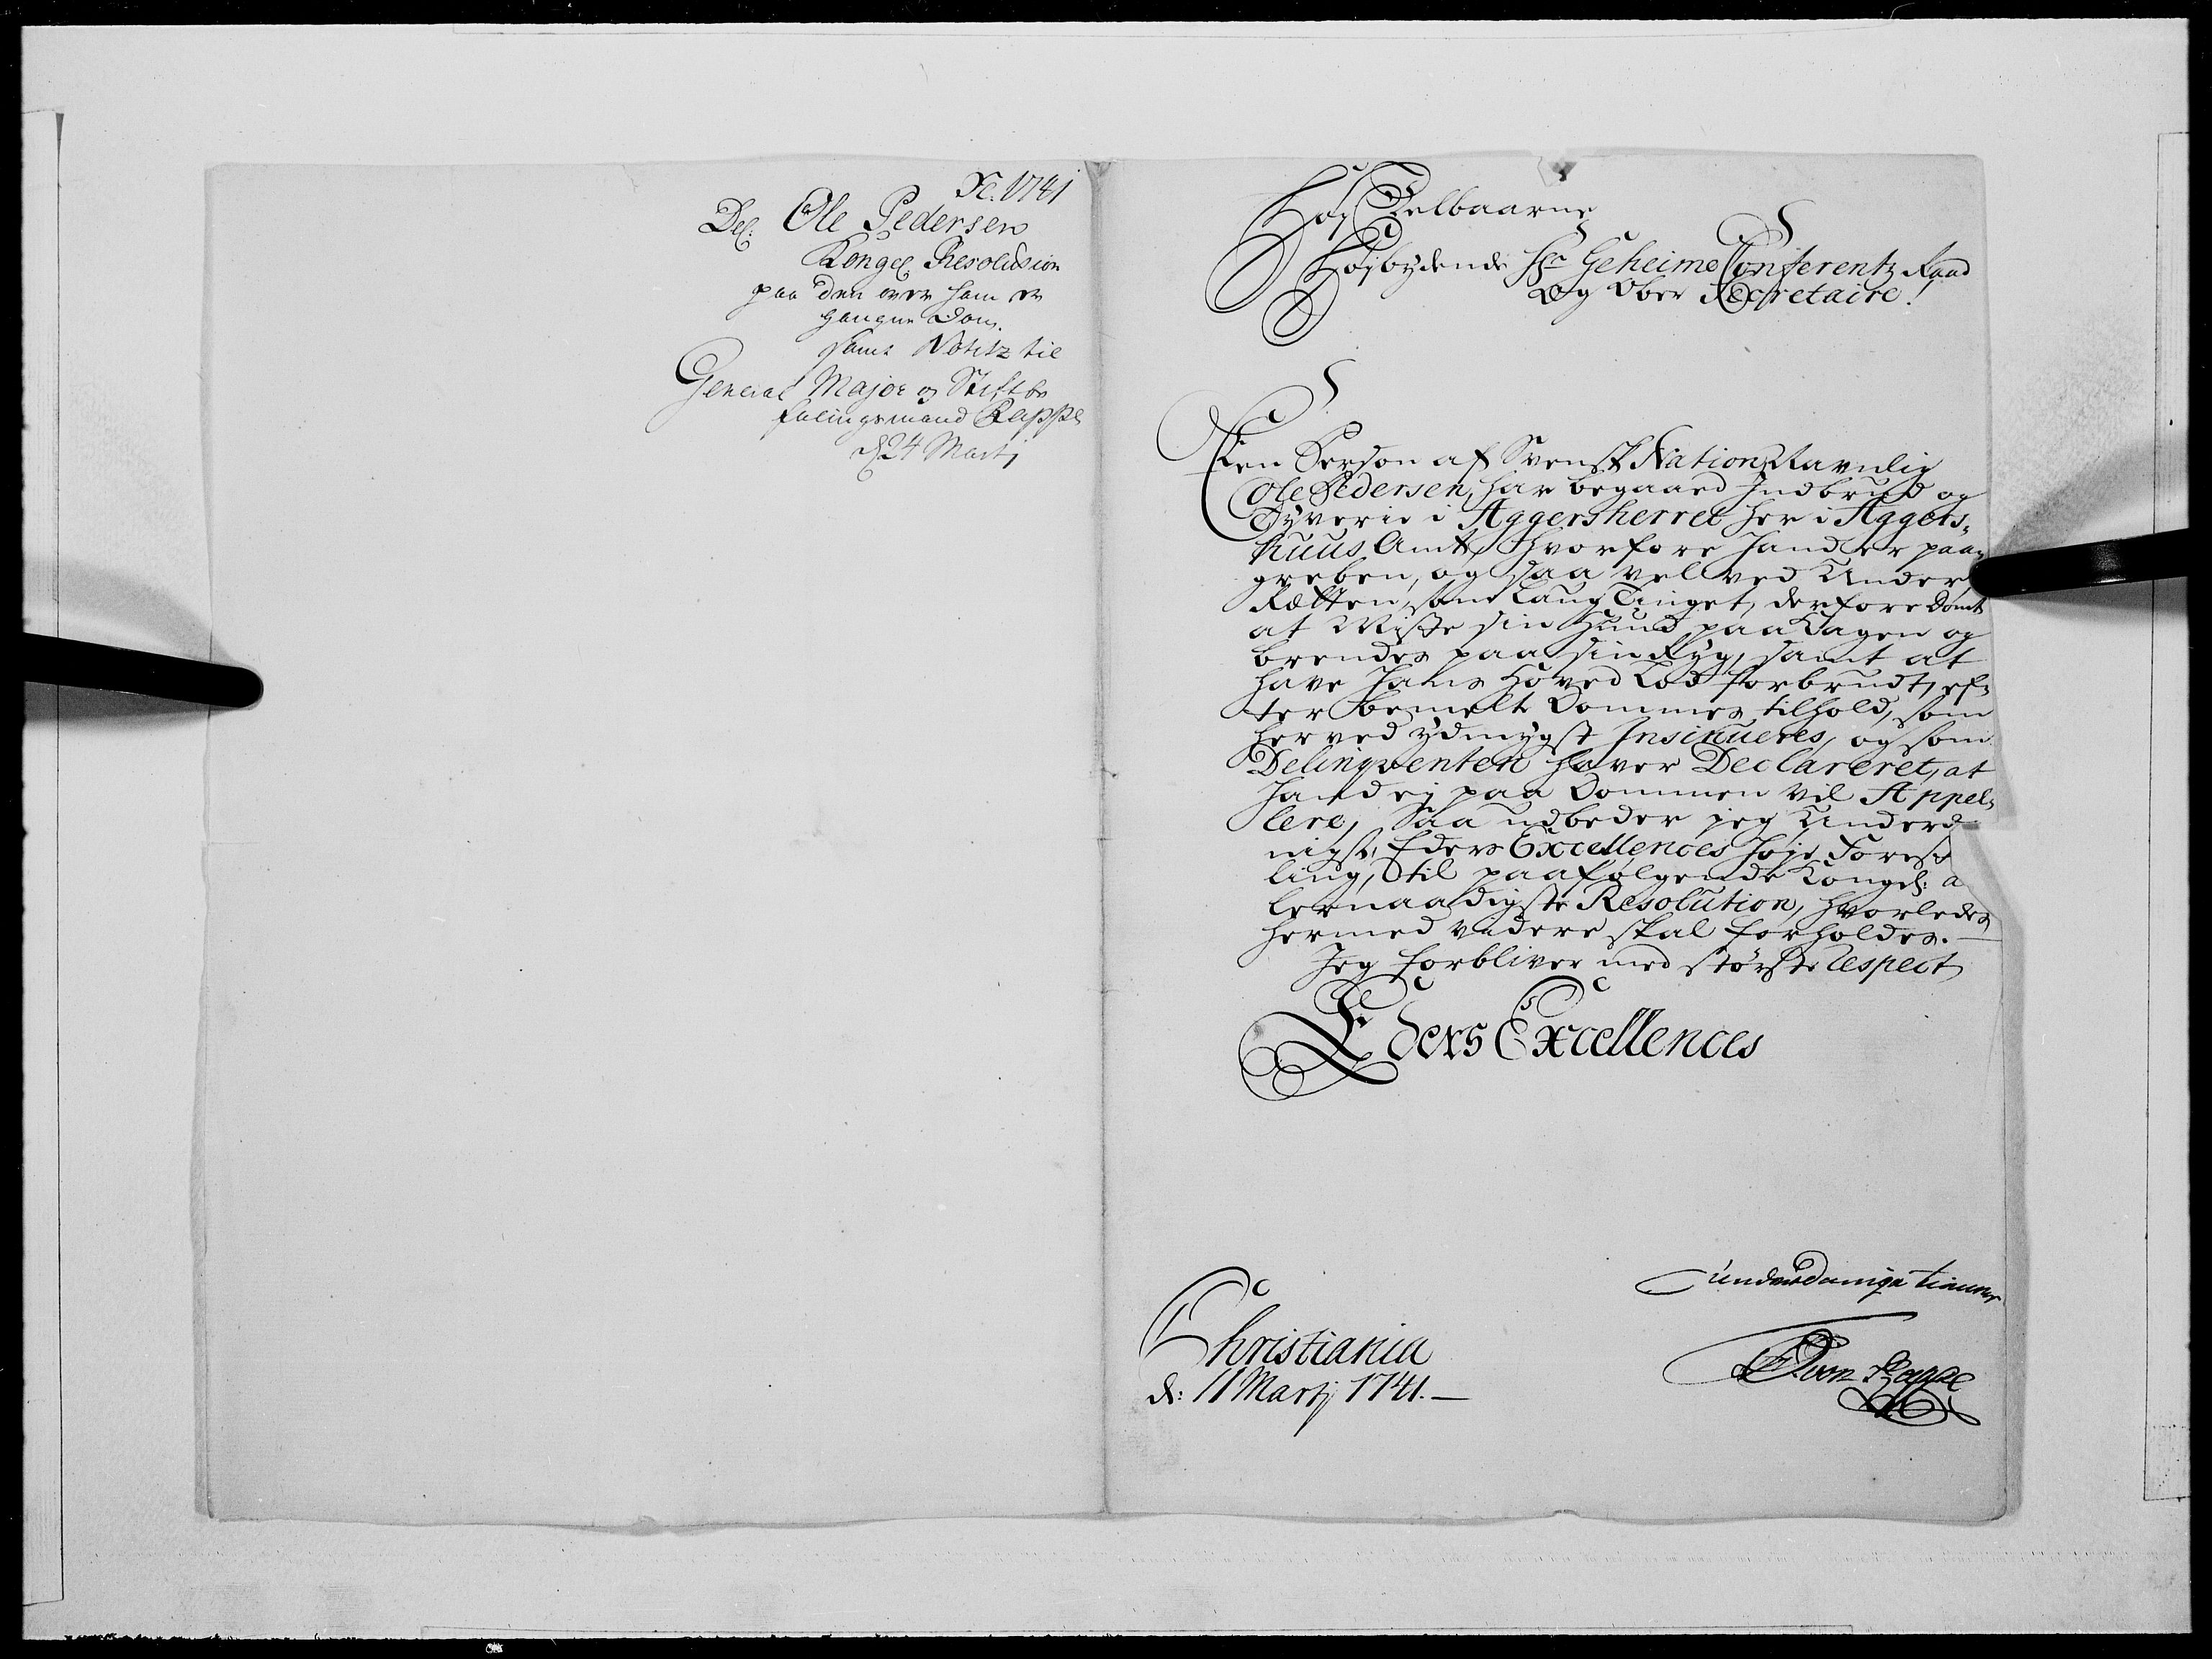 1741
Del: Ole Pedersen
Kongel: Resolution
paa den over ham er
gangne Dom.
samt Notitz til
General Major og Stiftbe
falingsmand Rappe
d 24 Martj
Høy Edelbaarne
Højbydende Hr Geheime Conferentz Raad
Og Ober Secretaire!
Een Person af Svensk Nation, Navnlig
Ole Pedersen, har begaaed Indbrud og
Tyverie i Aggersherret her i Aggers-
huus Amt, hvorfore hand er paa-
greben, og saa vel ved Under
Rætten, som Laug Tinget, derfore Dømt
at Miste sin Hund paa Kagen og
brendes paa sin Ryg, samt at
have hans Hoved Lod forbrudt, ef-
ter bemelte Dommes tilhold, som
herved ydmygst Insinueres, og som
Delinqventen haver Declareret, at
hand ej paa Dommen vil Appel-
lere, Saa udbeder jeg Underd
nigst, Eders Excellences høje Forest
ling, til paafølgende Kongel: a
lernaadigste Resolution, hvorledes
hermed videre skal forholdes. —
Jeg forbliver med største respect
Eders Excellences
underdanige tienner
von Rappe
Christiania
d: 11 Martj 1741. —